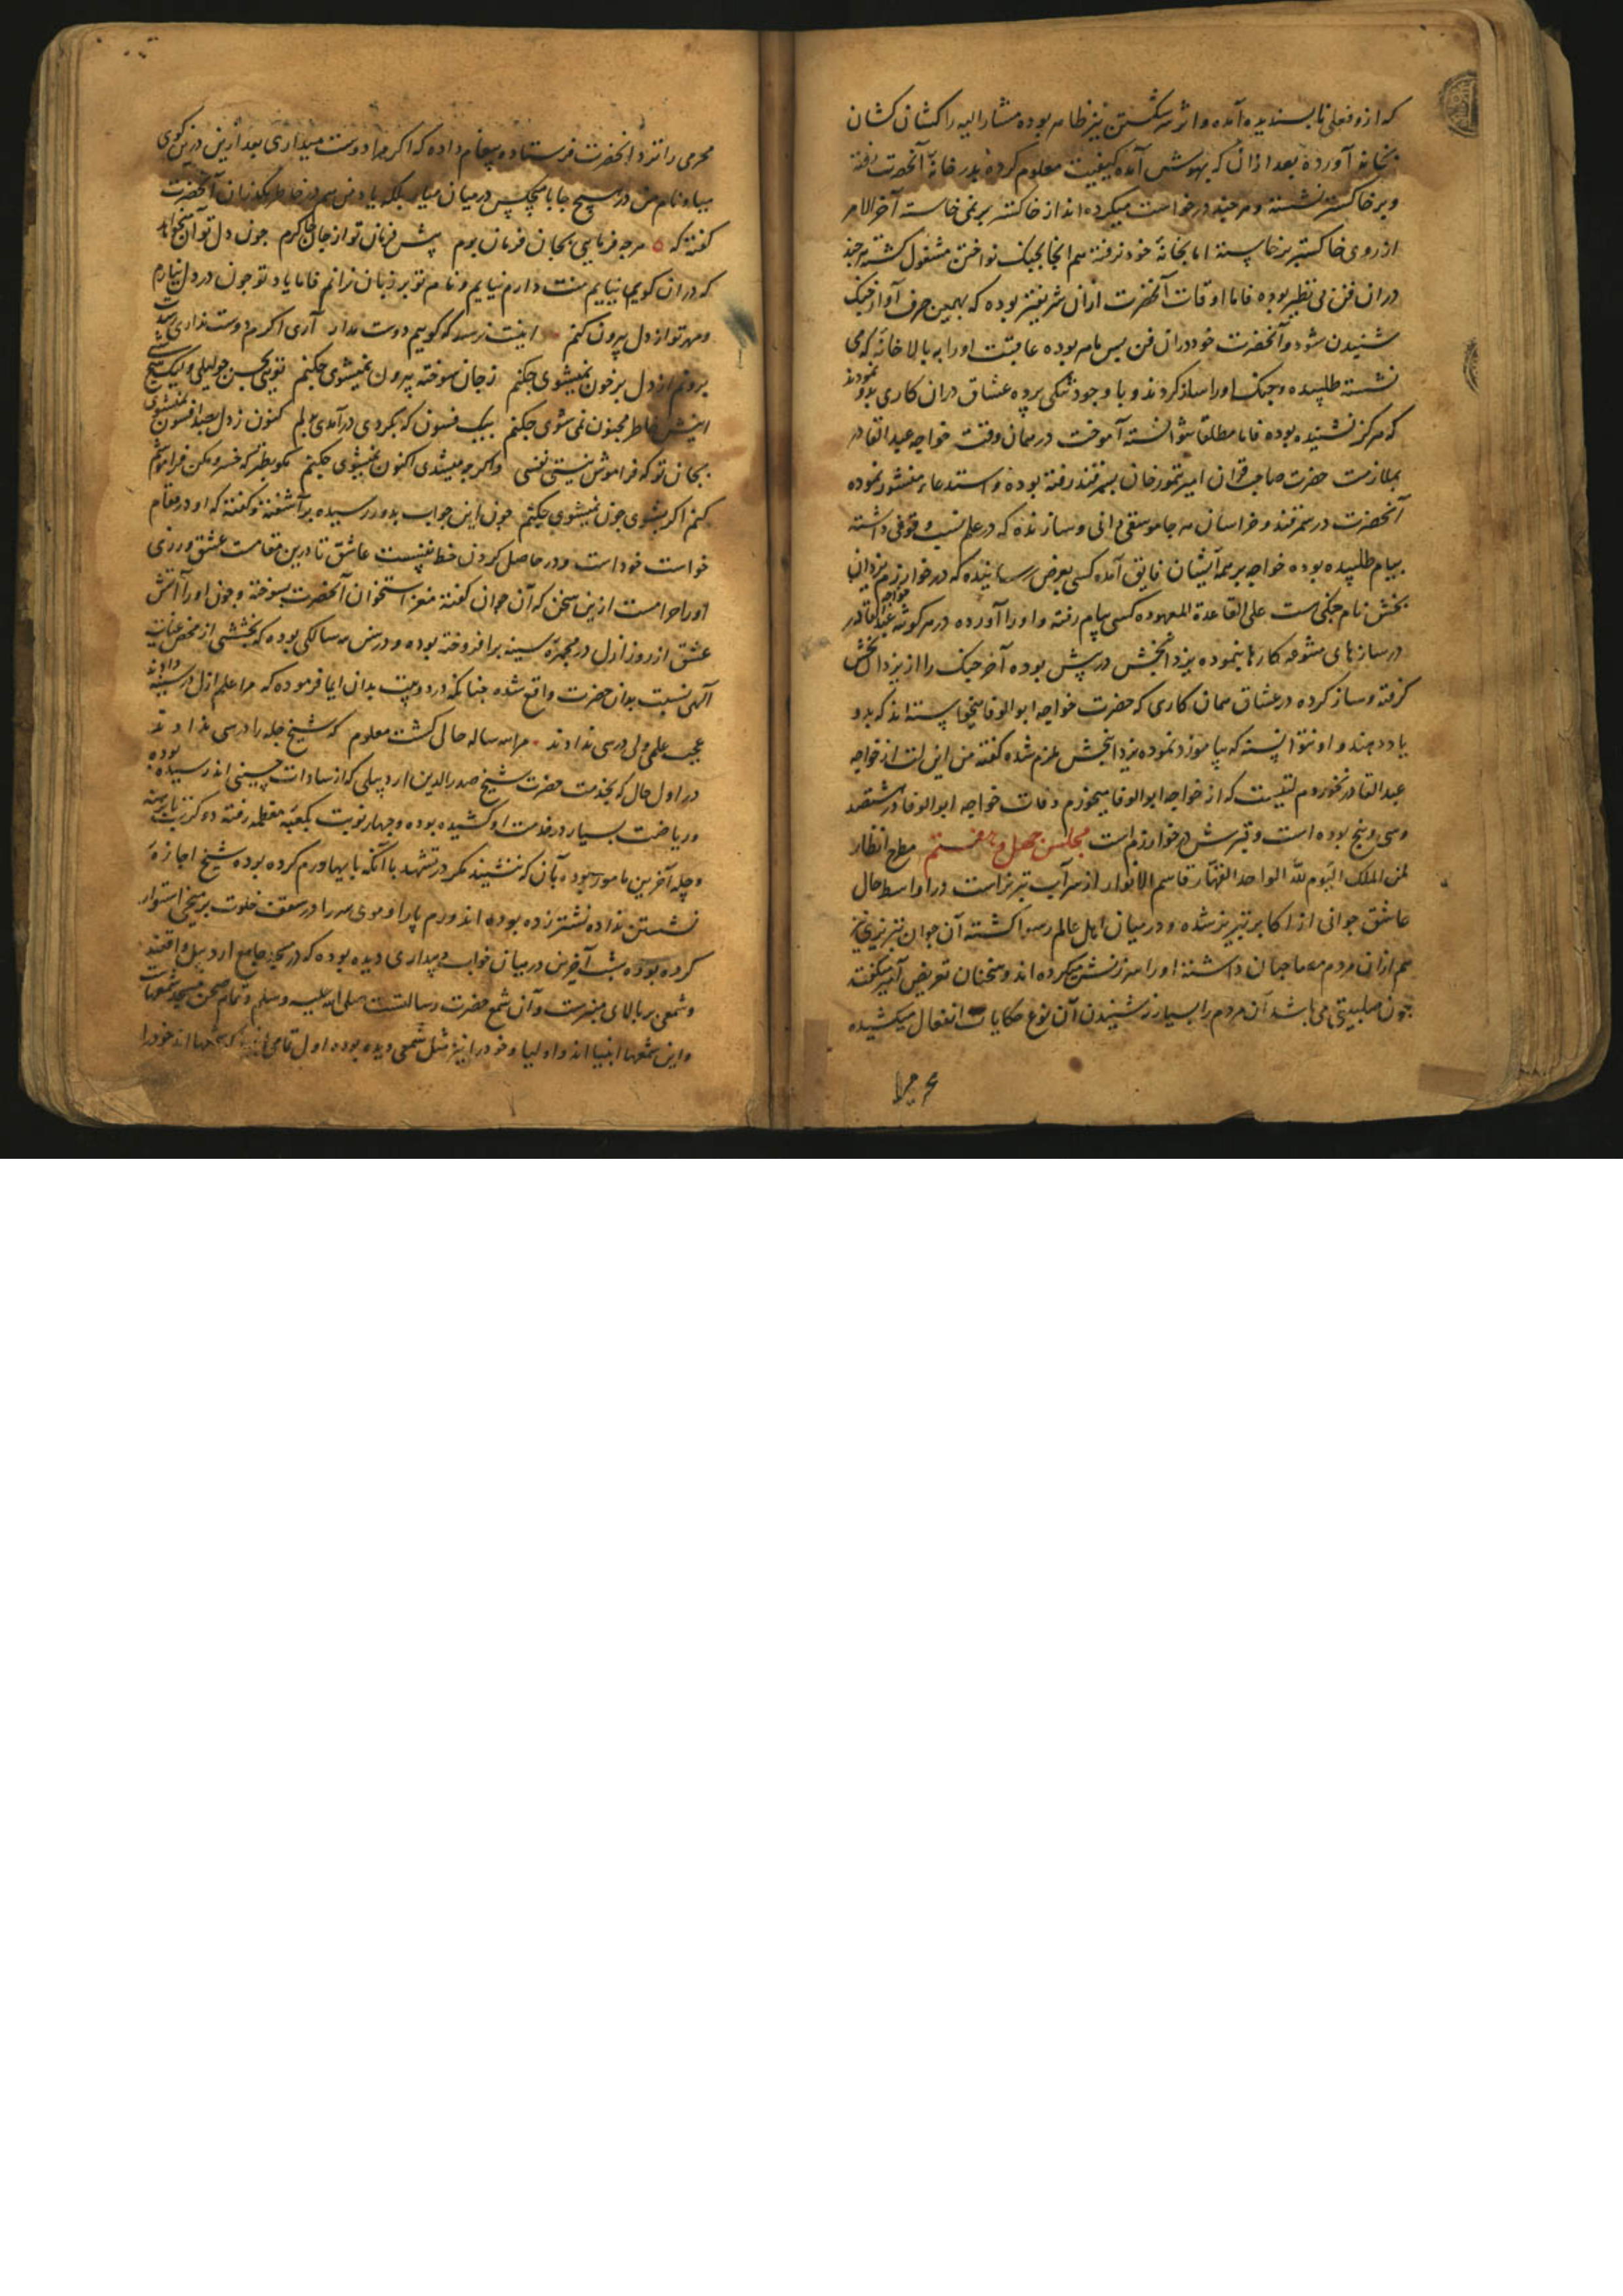 که ازو فعلی نابسندیده آمده و اثر شکستن نیز ظاهر بوده مشار الیه را کشان کشان
بخانه آورده بعد ازان که بهوش آمده کیفیت معلوم کرده بدر خانهٔ آنحضرت رفته
و بر خاکستر نشسته و هر چند درخواست میکرده اند از خاکستر بر نمی خاسته آخر الامر
از روی خاکستر برخاسته اما بخانهٔ خود نرفته هم انجا بجنک نواختن مشغول کشته هر چند
دران فن بی نظیر بوده فاما اوقات آنحضرت ازان شریفتر بوده که بهمین حرف آواز جنک
شنیدن شود و آنحضرت خود دران فن بس ماهر بوده عاقبت او را به بالا خانهٔ که می
نشسته طلبیده و جنک او را ساز کردند و با وجود تنکی برده عشاق دران کاری بدو نمودند
که هرکز نشنیده بوده فاما مطلقا نتوانسته آموخت در همان وقت خواجه عبد القادر
بملازمت حضرت صاحب قران امیر تمور خان بسمرقند رفته بوده و استدعاء منشور نموده
آنحضرت در سمرقند و خراسان هر جا موسیقی دانی و سازنده که در علم نسب وقوفی داشته
بیام طلبیده بوده خواجه بر همهٔ ایشان فایق آمده کسی بعرض رسانیده که در خوارزم یزدان
بخش نام جنکی است علی القاعدة المعهوده کسی بیام رفته و او را آورده در هر کوشه خواجه عبد القادر
در سازهای مشوقه کارها بنموده یزدانبخش در پیش بوده آخر جنک را از یزدان بخش
کرفته و ساز کرده در عشاق همان کاری که حضرت خواجه ابو الوفا میخواسته اند که بدو
یاد دهند و او نتوانسته که بیاموزد نموده یزدانبخش عزم شده کفته من این لت از خواجه
عبد القادر نخوردم لتیست که از خواجه ابو الوفا میخورم وفات خواجه ابو الوفا در هشتصد
و سی و پنج بوده است و قبرش در خوارزم است مجلس چهل و هفتم مطرح انظار
لمن الملک الیوم لله الواحد القهار قاسم الانوار از سراب تبریز است در اواسط حال
عاشق جوانی از اکابر تبریز شده و در میان اهل عالم رسوا کشته آن جوان تبریزی نیز
هم ازان مردم مه ماجیان داشته او را سرزنش میکرده اند و سخنان تعریض آمیز میکفته
جون صلبیتی می باشد آن مردم را بسیار از شنیدن آن نوع حکایات انفعال میکشیده
محرمی
محرمی را نزد آنحضرت فرستاده و پیغام داده که اکر مرا دوست میداری بعد ازین درین کوی
میا و نام من در هیچ جا با هیچکس در میان میار بلکه یاد من هم در خاطر مکذران آنحضرت
کفته که هر چه فرمایی بجان فرمان برم پیش فرمان تو از جان چاکرم جون دل تو آن میخواهد
که دران کوی نیایم منت دارم نیایم و نام تو بر زبان نرانم فاما یاد تو جون در دل نیارم
و مهر تو از دل بیرون کنم اینت نرسد که کوییم دوست مدار آری اکرم دوست نداری رسدت
برونم از دل بر خون نمیشوی جکنم ز جان سوخته بیرون نمیشوی جکنم تویی بحسن جو لیلی ولیک هیچ شبی
انیس خاطر مجنون نمی شوی جکنم بیک فسون که بکردی درآمدی بدلم کنون ز دل بصد افسون نمیشوی
بجان تو که فراموش نیستی نفسی و اکر جو میشدی اکنون نمیشوی جکنم مکو بطنز که خسرو مکن فراموشم
کنم اکر بشوی جون نمیشوی جکنم جون این جواب بدو رسیده برآشفته و کفته که او در مقام
خواست خود است و در حاصل کردن حظ نفسست عاشق تا درین مقامست عشق ورزی
او را حرامست ازین سخن که آن جوان کفته مغز استخوان آنحضرت بسوخته و جون او را آتش
عشق از روز ازل در مجمرهٔ سینه برافروخته بوده و درس سه سالکی بوده که بخششی از محض عنایت
آلهی نسبت بدان حضرت واقع شده جنانکه در دو بیت بدان ایما فرموده که مرا علم ازل در سینه دادند
عجب علمی ولی درسی ندادند مرا سه ساله حالی کشت معلوم که شیخ چله را در سی ندادند
در اول حال که بخدمت حضرت شیخ صدر الدین اردبیلی که از سادات حسینی اند رسیده بوده
و ریاضت بسیار در خدمت او کشیده بوده و جهار نوبت بکعبهٔ معظمه رفته دو کرت پا برهنه
و چله آخرین مامور بوده بآن که ننشیند مکر در تشهد با آنکه پایها ورم کرده بوده شیخ اجازهٔ
نشستن نداده نشتر زده بوده اند ورم پا را و موی سر را در سقف خلوت بر میخی استوار
کرده بوده شب آخرین در میان خواب و بیداری دیده بوده که در مسجد جامع اردبیل واقعند
و شمعی بر بالای منبرست و آن شمع حضرت رسالتست صلی الله علیه وسلم و تمام صحن مسجد شمعهاست
و این شمعها انبیا اند و اولیا و خود را نیز مثل شمعی دیده بوده اول تمامی